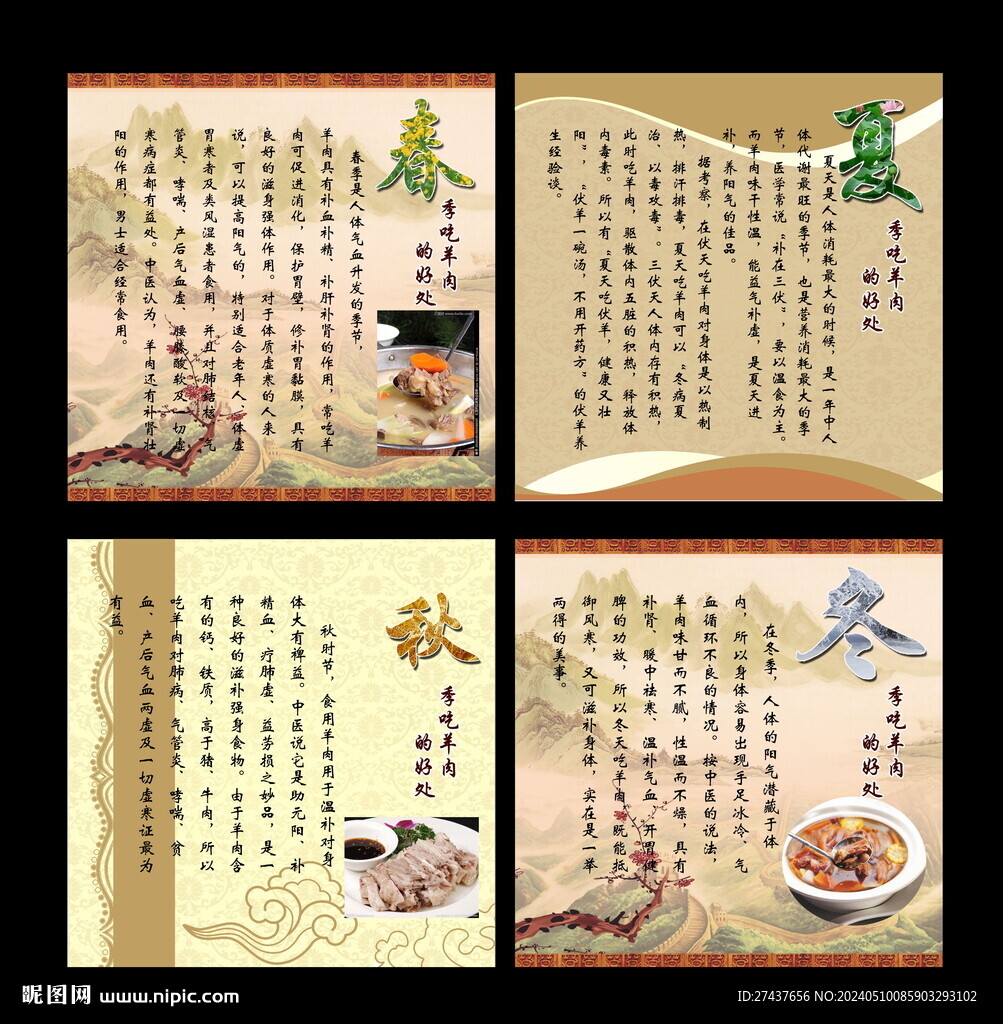 春
季吃羊肉
的好处
春季是人体气血升发的季节，
羊肉具有补血补精、补肝补肾的作用，常吃羊
肉可促进消化，保护胃壁，修补胃黏膜，具有
良好的滋身强体作用。对于体质虚寒的人来
说，可以提高阳气的，特别适合老年人、体虚
胃寒者及类风湿患者食用，并且对肺结核、气
管炎、哮喘、产后气血虚、腰膝酸软及一切虚
寒病症都有益处。中医认为，羊肉还有补肾壮
阳的作用，男士适合经常食用。
夏
季吃羊肉
的好处
夏天是人体消耗最大的时候，是一年中人
体代谢最旺的季节，也是营养消耗最大的季
节，医学常说“补在三伏”，要以温食为主。
而羊肉味干性温，能益气补虚，是夏天进
补，养阳气的佳品。
据考察，在伏天吃羊肉对身体是以热制
热，排汗排毒，夏天吃羊肉可以“冬病夏
治、以毒攻毒”。三伏天人体内存有积热，
此时吃羊肉，驱散体内五脏的积热，释放体
内毒素。所以有“夏天吃伏羊，健康又壮
阳”，“伏羊一碗汤，不用开药方”的伏羊养
生经验谈。
秋
季吃羊肉
的好处
秋时节，食用羊肉用于温补对身
体大有裨益。中医说它是助元阳、补
精血、疗肺虚、益劳损之妙品，是一
种良好的滋补强身食物。由于羊肉含
有的钙、铁质，高于猪、牛肉，所以
吃羊肉对肺病、气管炎、哮喘、贫
血、产后气血两虚及一切虚寒证最为
有益。
冬
季吃羊肉
的好处
在冬季，人体的阳气潜藏于体
内，所以身体容易出现手足冰冷、气
血循环不良的情况。按中医的说法，
羊肉味甘而不腻，性温而不燥，具有
补肾、暖中祛寒、温补气血、开胃健
脾的功效，所以冬天吃羊肉，既能抵
御风寒，又可滋补身体，实在是一举
两得的美事。
昵图网 www.nipic.com
ID:27437656 NO:20240510085903293102